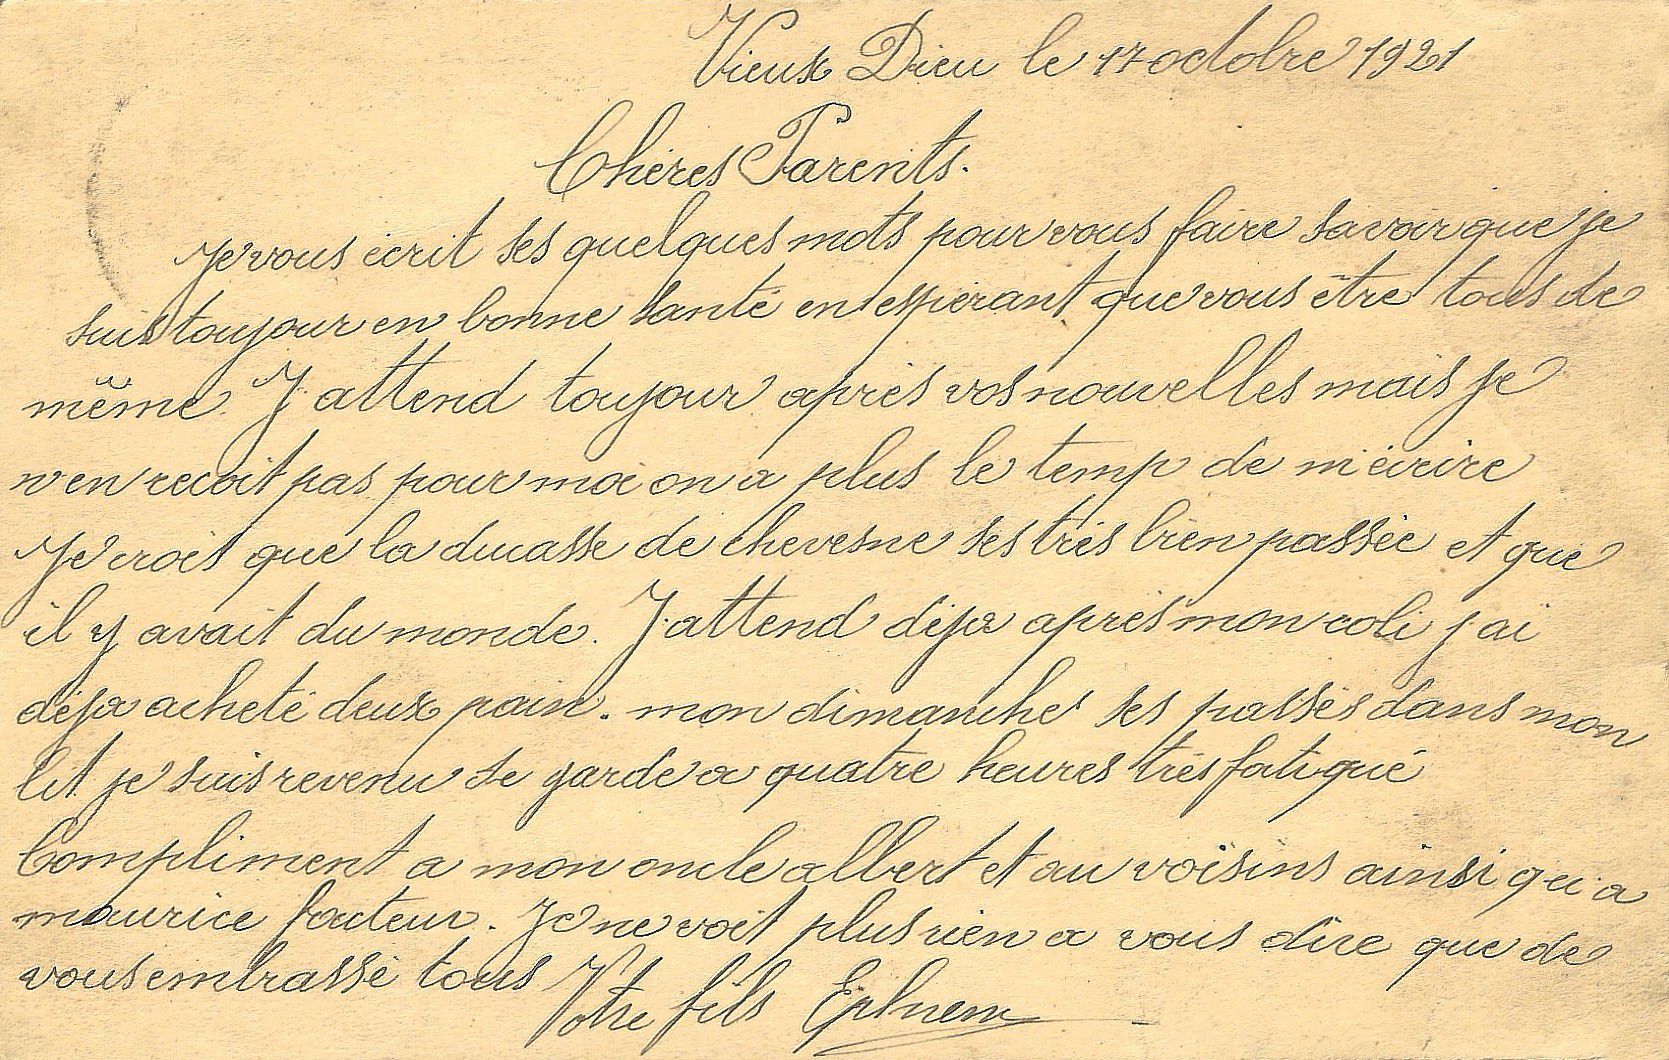 Vieux Dieu le 17 octobre 1921
Chères Parents.
Je vous écrit ses quelques mots pour vous faire savoir que je
suis toujour en bonne santé en espérant que vous être tous de
même. J'attend toujour après vos nouvelles mais je
n'en recoit pas pour moi on a plus le temp de m'écrire
Je crois que la ducasse de chevesne ses très bien passée et que
il y avait du monde. J'attend déja après mon coli j'ai
déja acheté deux pain. mon dimanche ses passés dans mon
lit je suis revenu de garde a quatre heures très fatigué
Compliment a mon oncle albert et au voisins ainsi qu'a
maurice facteur. Je ne voit plus rien a vous dire que de
vous embrassé tous
Votre fils Ephrem